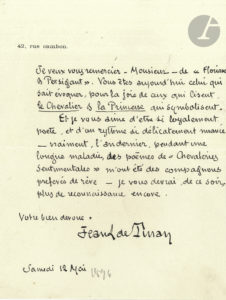 42, rue cambon.
Je veux vous remercier - Monsieur - de « Floriane
& Persigant ». Vous êtes aujourd'hui celui qui
sait évoquer, pour la joie de ceux qui lisent,
le Chevalier & la Princesse qui symbolisent.
Et je vous aime d'être si loyalement
poète, et d'un rythme si délicatement nuancé
- vraiment, l'an dernier, pendant une
longue maladie, des poèmes de « Chevaleries
Sentimentales » m'ont été des compagnons
préférés de rêve - je vous devrai, de ce soir,
plus de reconnaissance encore.
Votre bien dévoué.
Jean de Tinan
Samedi 12 Mai 1896